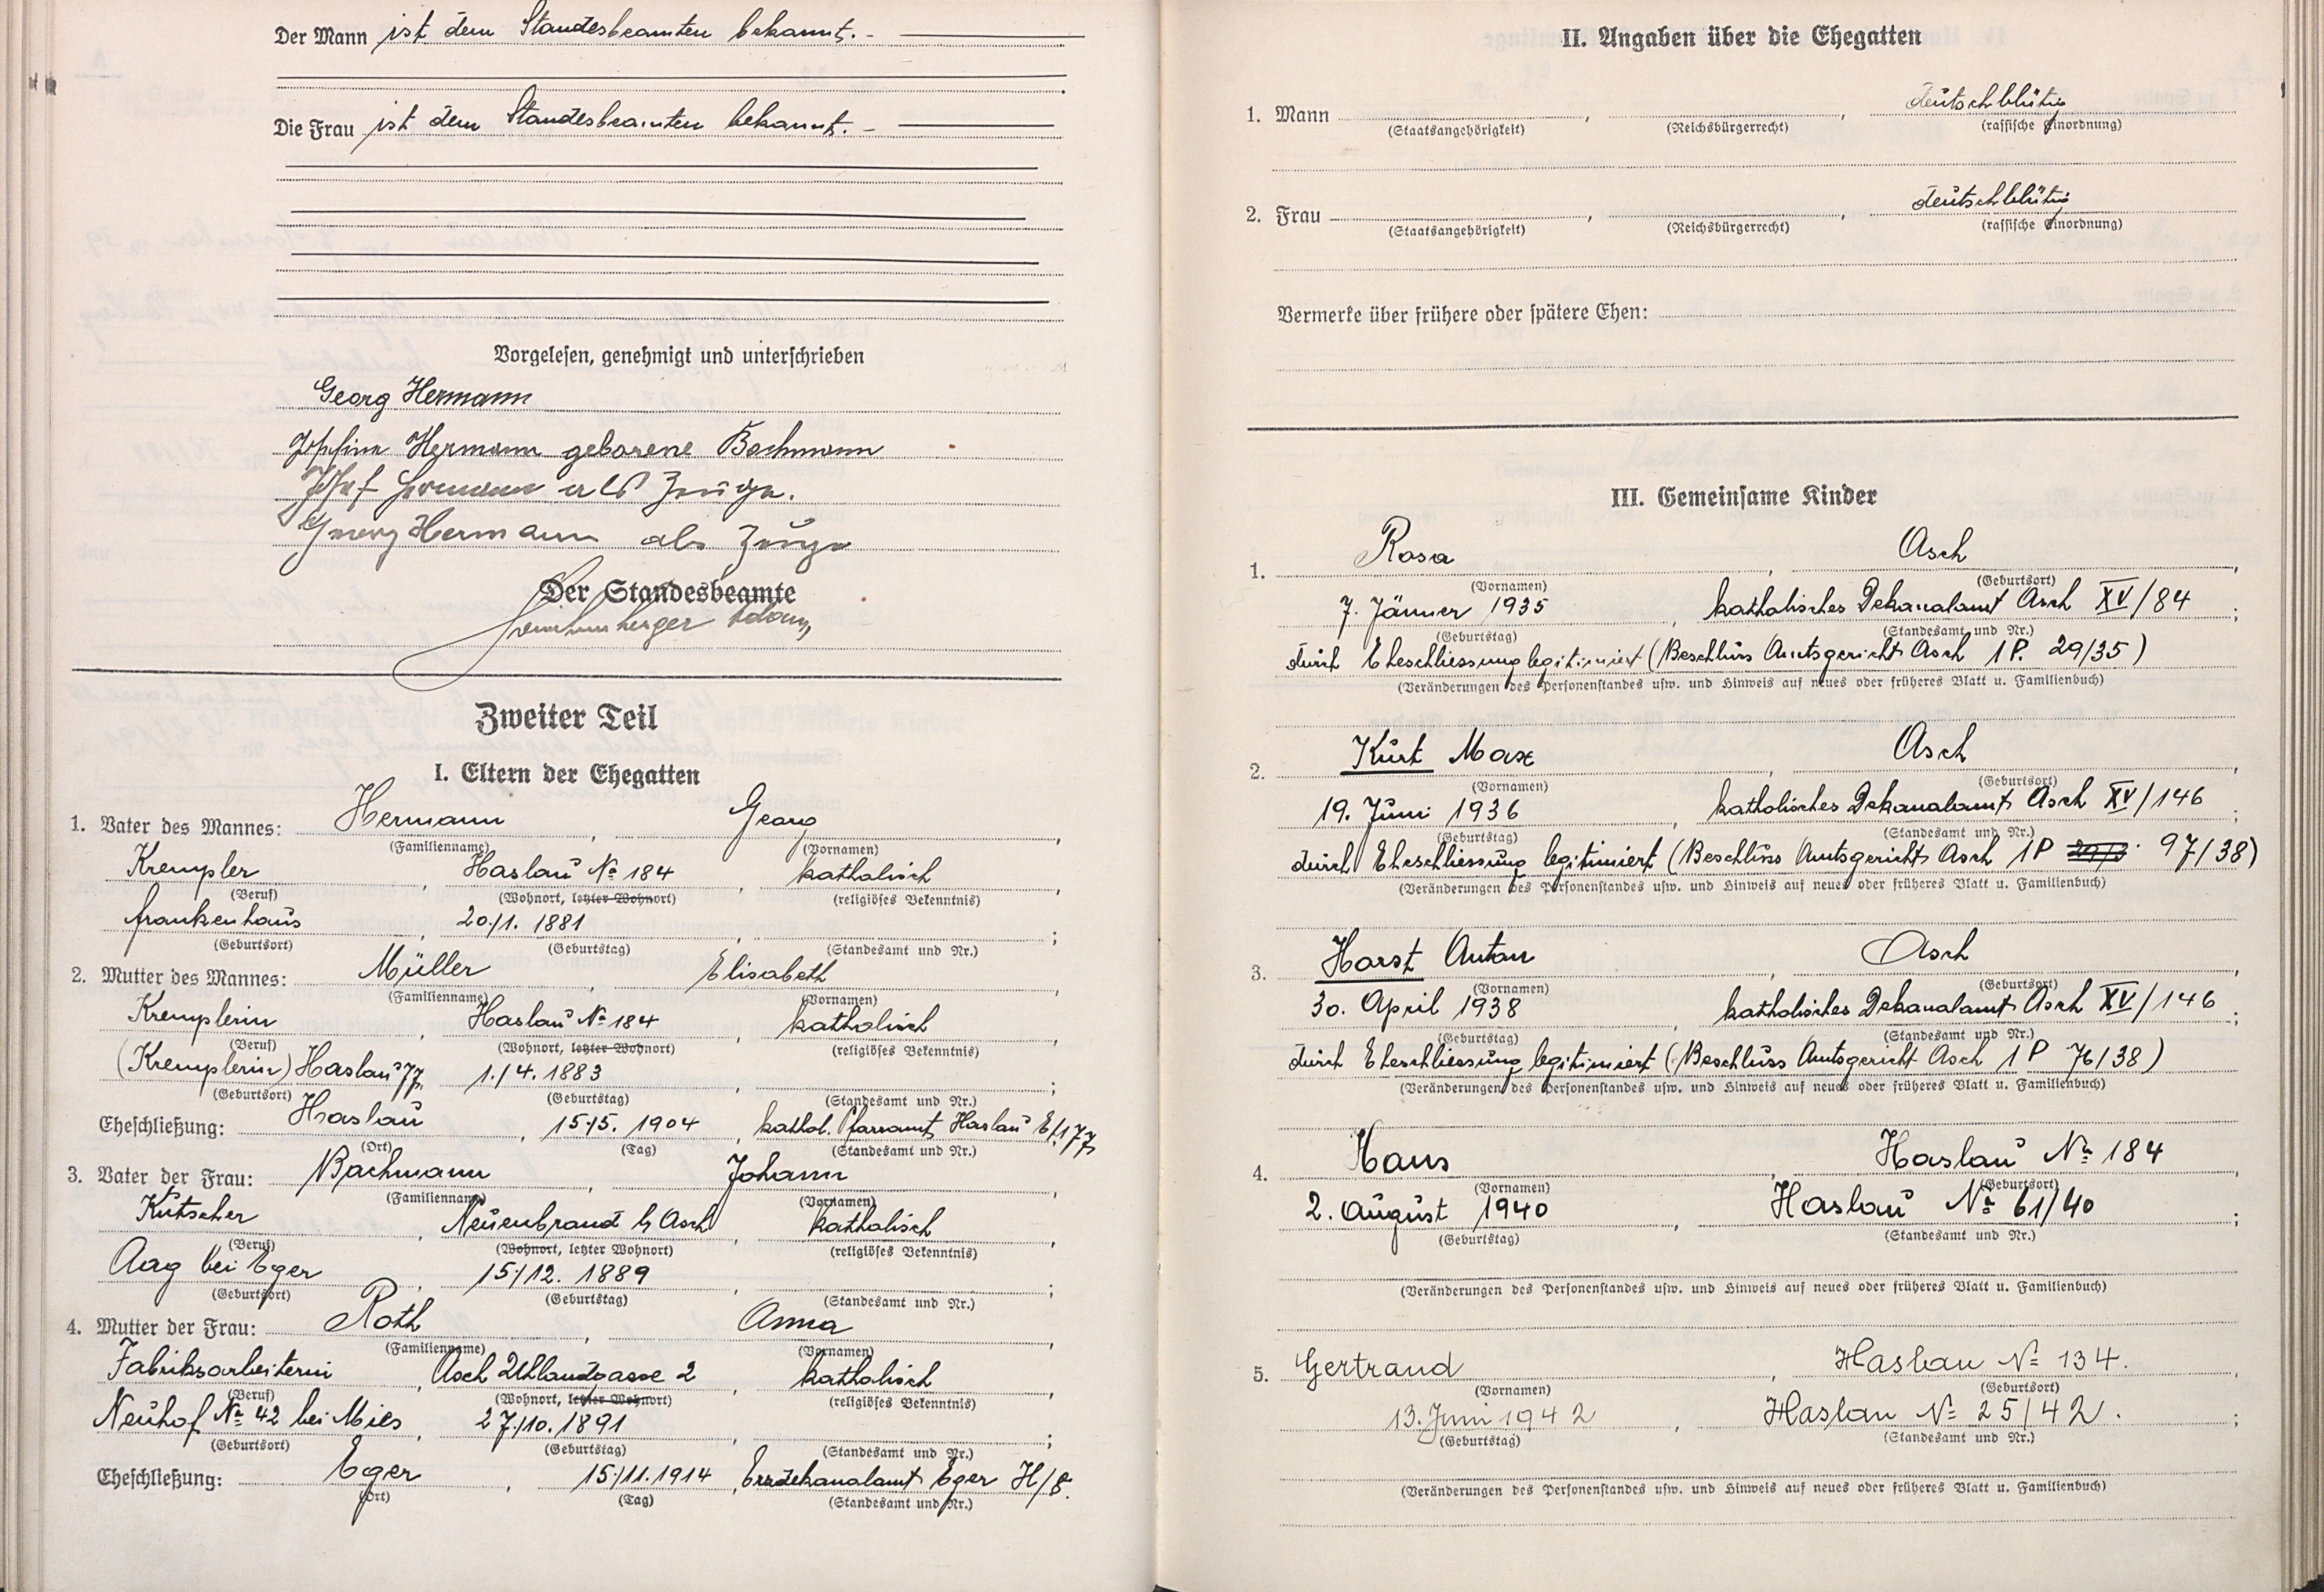 Der Mann ist dem Standesbeamten bekannt. -
Die Frau ist dem Standesbeamten bekannt. -
Vorgelesen, genehmigt und unterschrieben
Georg Hermann
Josefine Hermann geborene Bachmann
Josef Hermann als Zeuge.
Georg Hermann als Zeuge
Der Standesbeamte
Adam
Zweiter Teil
I. Eltern der Ehegatten
1. Vater des Mannes: Hermann, Georg,
(Familienname) (Vornamen)
Krempler, Haslau № 184, katholisch,
(Beruf) (Wohnort, letzter Wohnort) (religiöses Bekenntnis)
Frankenhaus, 20./1. 1881, ;
(Geburtsort) (Geburtstag) (Standesamt und Nr.)
2. Mutter des Mannes: Müller, Elisabeth,
(Familienname) (Vornamen)
Kremplerin, Haslau № 184, katholisch,
(Beruf) (Wohnort, letzter Wohnort) (religiöses Bekenntnis)
(Kremplerin) Haslau 77, 1./4. 1883, ;
(Geburtsort) (Geburtstag) (Standesamt und Nr.)
Eheschließung: Haslau, 15./5. 1904, kathol. Pfarramt Haslau E/177
(Ort) (Tag) (Standesamt und Nr.)
3. Vater der Frau: Bachmann, Johann,
(Familienname) (Vornamen)
Kutscher, Neuenbrand b/ Asch, katholisch,
(Beruf) (Wohnort, letzter Wohnort) (religiöses Bekenntnis)
Aag bei Eger, 15./12. 1889, ;
(Geburtsort) (Geburtstag) (Standesamt und Nr.)
4. Mutter der Frau: Roth, Anna,
(Familienname) (Vornamen)
Fabriksarbeiterin, Asch Uhlandgasse 2, katholisch,
(Beruf) (Wohnort, letzter Wohnort) (religiöses Bekenntnis)
Neuhof № 42 bei Mies, 27./10. 1891, ;
(Geburtsort) (Geburtstag) (Standesamt und Nr.)
Eheschließung: Eger, 15./11. 1914, Erzdekanalamt Eger H/8.
(Ort) (Tag) (Standesamt und Nr.)
II. Angaben über die Ehegatten
1. Mann , , deutschblütig
(Staatsangehörigkeit) (Reichsbürgerrecht) (rassische Einordnung)
2. Frau , , deutschblütig
(Staatsangehörigkeit) (Reichsbürgerrecht) (rassische Einordnung)
Vermerke über frühere oder spätere Ehen:
III. Gemeinsame Kinder
1. Rosa, Asch,
(Vornamen) (Geburtsort)
7. Jänner 1935, katholisches Dekanalamt Asch XV/84;
(Geburtstag) (Standesamt und Nr.)
durch Eheschliessung legitimiert (Beschluss Amtsgericht Asch 1P. 29/35)
(Veränderungen des Personenstandes usw. und Hinweis auf neues oder früheres Blatt u. Familienbuch)
2. Kurt Max, Asch,
(Vornamen) (Geburtsort)
19. Juni 1936, katholisches Dekanalamt Asch XV/146;
(Geburtstag) (Standesamt und Nr.)
durch Eheschliessung legitimiert (Beschluss Amtsgericht Asch 1P 97/38)
(Veränderungen des Personenstandes usw. und Hinweis auf neues oder früheres Blatt u. Familienbuch)
3. Horst Anton, Asch,
(Vornamen) (Geburtsort)
30. April 1938, katholisches Dekanalamt Asch XV/146;
(Geburtstag) (Standesamt und Nr.)
durch Eheschliessung legitimiert (Beschluss Amtsgericht Asch 1P 76/38)
(Veränderungen des Personenstandes usw. und Hinweis auf neues oder früheres Blatt u. Familienbuch)
4. Hans, Haslau № 184,
(Vornamen) (Geburtsort)
2. August 1940, Haslau № 61/40;
(Geburtstag) (Standesamt und Nr.)
(Veränderungen des Personenstandes usw. und Hinweis auf neues oder früheres Blatt u. Familienbuch)
5. Gertraud, Haslau № 134.,
(Vornamen) (Geburtsort)
13. Juni 1942, Haslau № 25/42.;
(Geburtstag) (Standesamt und Nr.)
(Veränderungen des Personenstandes usw. und Hinweis auf neues oder früheres Blatt u. Familienbuch)